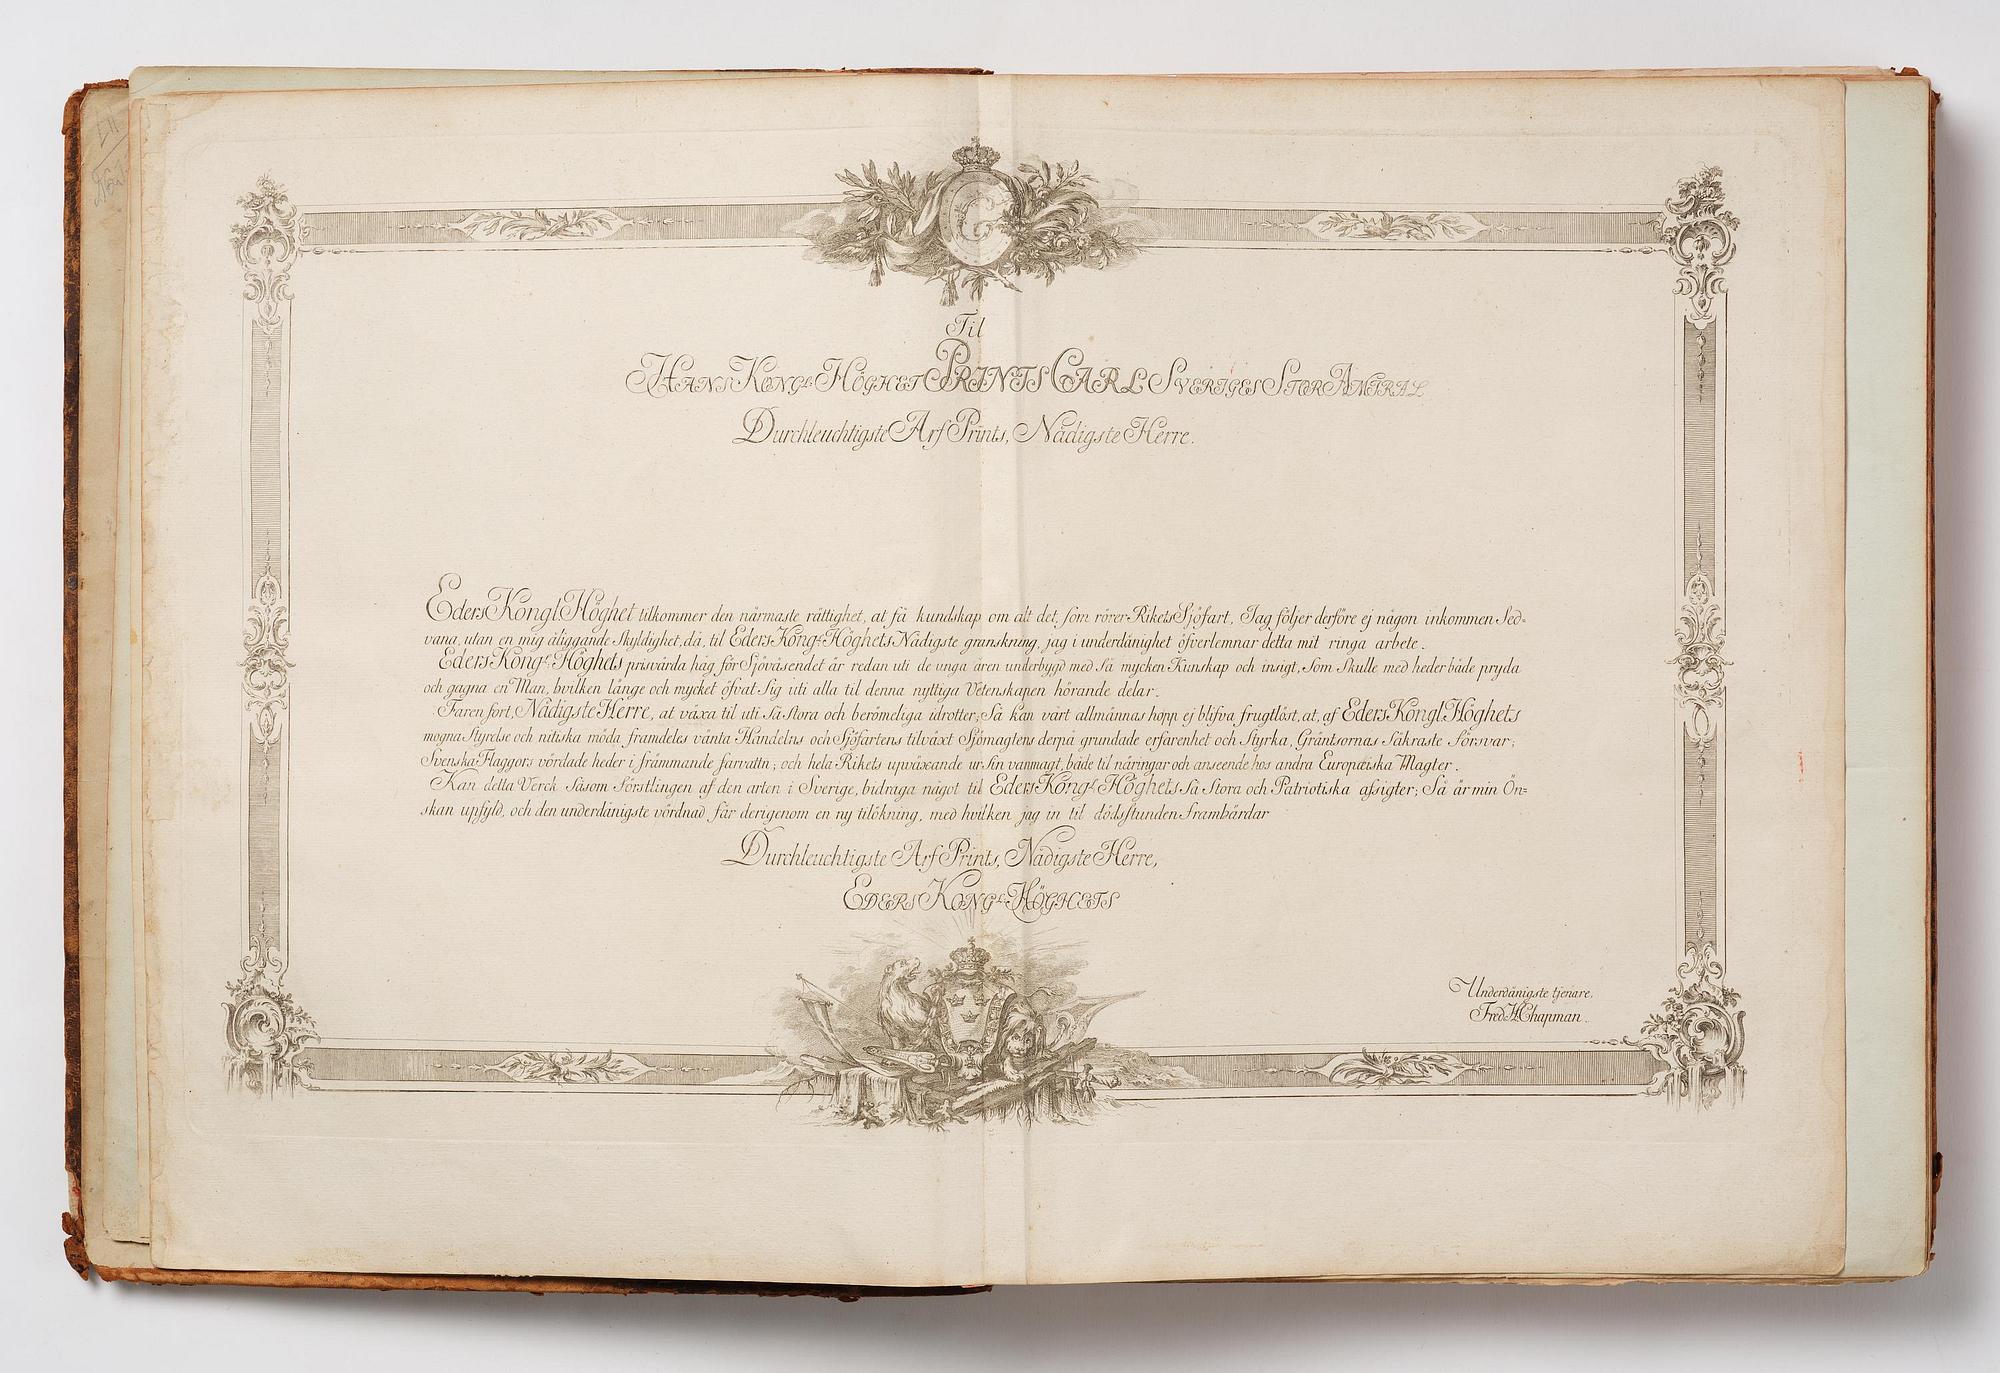 Til
HANS KONGL. HÖGHET PRINTS CARL SVERIGES STOR AMIRAL
Durchleuchtigste Arf Prints, Nådigste Herre.
Eders Kongl. Höghet tilkommer den närmaste rättighet, at få kundskap om alt det, som rörer Rikets Sjöfart, Jag följer derföre ej någon inkommen Sed-
vana, utan en mig åliggande skyldighet, då, til Eders Kongl. Höghets Nådigste granskning, jag i underdånighet öfverlemnar detta mit ringa arbete.
Eders Kongl. Höghets prisvärda håg för Sjöväsendet är redan uti de unga åren underbygd med så mycken Kunskap och insigt, som skulle med heder både pryda
och gagna en Man, hvilken länge och mycket öfvat sig uti alla til denna nyttiga Vetenskapen hörande delar.
Faren fort, Nådigste Herre, at växa til uti så stora och berömeliga idrotter; Så kan vårt allmännas hopp ej blifva frugtlöst, at, af Eders Kongl. Höghets
mogna styrelse och nitiska möda framdeles vänta Handelns och Sjöfartens tilväxt Sjömagtens derpå grundade erfarenhet och styrka, Gräntsornas säkraste försvar;
Svenska Flaggors vördade heder i främmande farvattn; och hela Rikets upväxande ur sin vanmagt, både til näringar och anseende hos andra Europæiska Magter.
Kan detta Verck såsom förstlingen af den arten i Sverige, bidraga något til Eders Kongl. Höghets så stora och Patriotiska afsigter; Så är min Ön-
skan upfyld, och den underdånigste vördnad får derigenom en ny tilökning, med hvilken jag in til dödsstunden frambärdar
Durchleuchtigste Arf Prints, Nådigste Herre,
EDERS KONGL. HÖGHETS
Underdånigste tjenare,
Fred H Chapman.